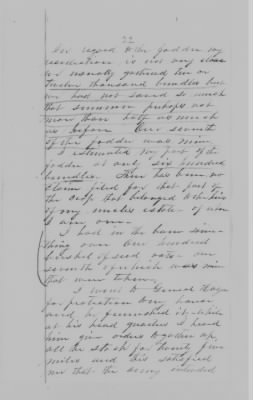 22
In regard to the fodder my
recollection is not very clear
we usually gathered ten or
twelve thousand bundles but
we had not saved so much
that summer perhaps not
more than half as much
as before. One seventh
of the fodder was mine
I estimated my part of the
fodder at only six hundred
bundles. There has been no
claim filed for that part of
the crop that belonged to the heirs
of my uncles estate of whom
I am one.
I had in the barn some-
thing over one hundred
bushel of seed oats one
seventh of which was mine
that were taken.
I went to General Hazen
for protection to my house
and he furnished it while
at his head quarters I heard
him give orders to gather up
all the stock for twenty five
miles and this satisfied
me that the army intended